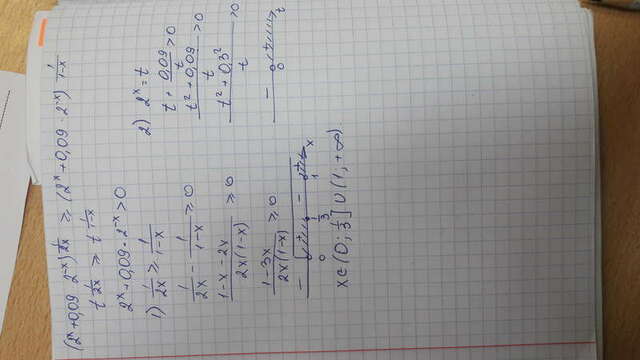 (2ˣ+0,09·2⁻ˣ)^(1/2x) ≥ (2ˣ+0,09·2⁻ˣ)^(1/1-x)
t^(1/2x) ≥ t^(1/1-x)
2ˣ+0,09·2⁻ˣ>0
1) 1/2x ≥ 1/1-x
1/2x - 1/1-x ≥ 0
1-x-2x/2x(1-x) ≥ 0
1-3x/2x(1-x) ≥ 0
- + - +
0 1/3 1 x
x∈(0; 1/3]∪(1,+∞)
2) 2ˣ=t
t + 0,09/t >0
t²+0,09/t >0
t²+0,3²/t >0
- +
0 t